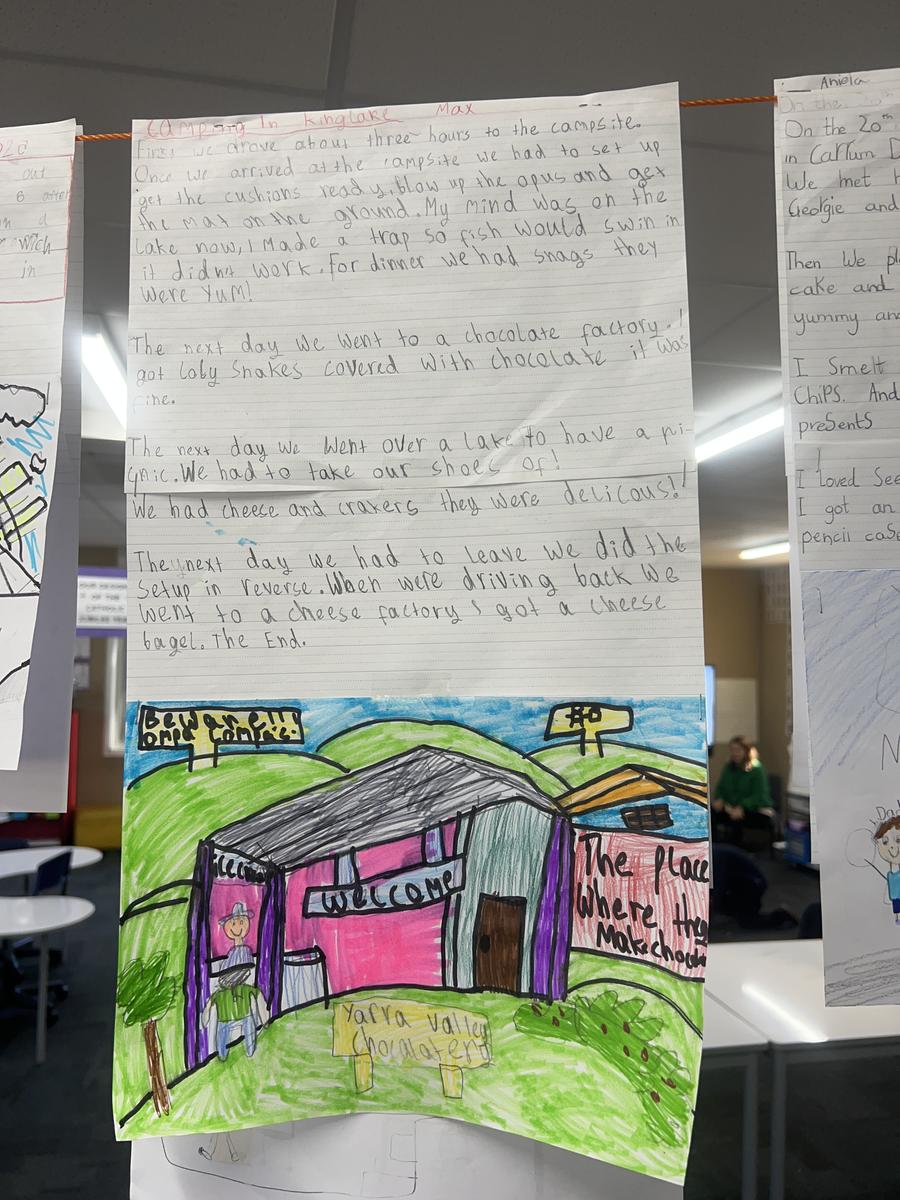 Camping In kinglake Max
First we drove about three hours to the campsite.
Once we arrived at the campsite we had to set up
get the cushions ready, blow up the opus and get
the mat on the ground. My mind was on the
lake now, I Made a trap so fish would swin in
it didnt work. For dinner we had snags they
were YUM!
The next day we went to a chocolate factory. I
got loly Snakes covered with chocolate it was
fine.
The next day we went over a lake to have a pi-
gnic. We had to take our shoes of!
We had cheese and craxers they were delicous!!
They next day we had to leave we did the
setup in reverse. When were driving back we
went to a cheese factory I got a cheese
bagel. The End.
Beware!!!
WELLCOME
The place
Where they
Makechoco
Yarra valley
Chocalatery
out
6 after
in a
wich
in
Aniela
On the 20th
in Callum D
We met
Georgie and
Then We pl
cake and
yummy and
I Smelt
Chips. And
presents
I loved See
I got an
pencil case
N
Dad